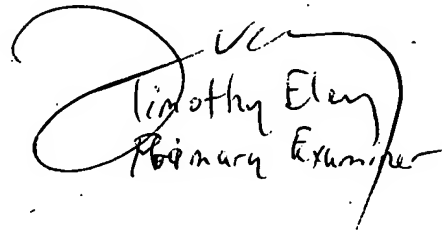 Timothy Eley
Primary Examiner